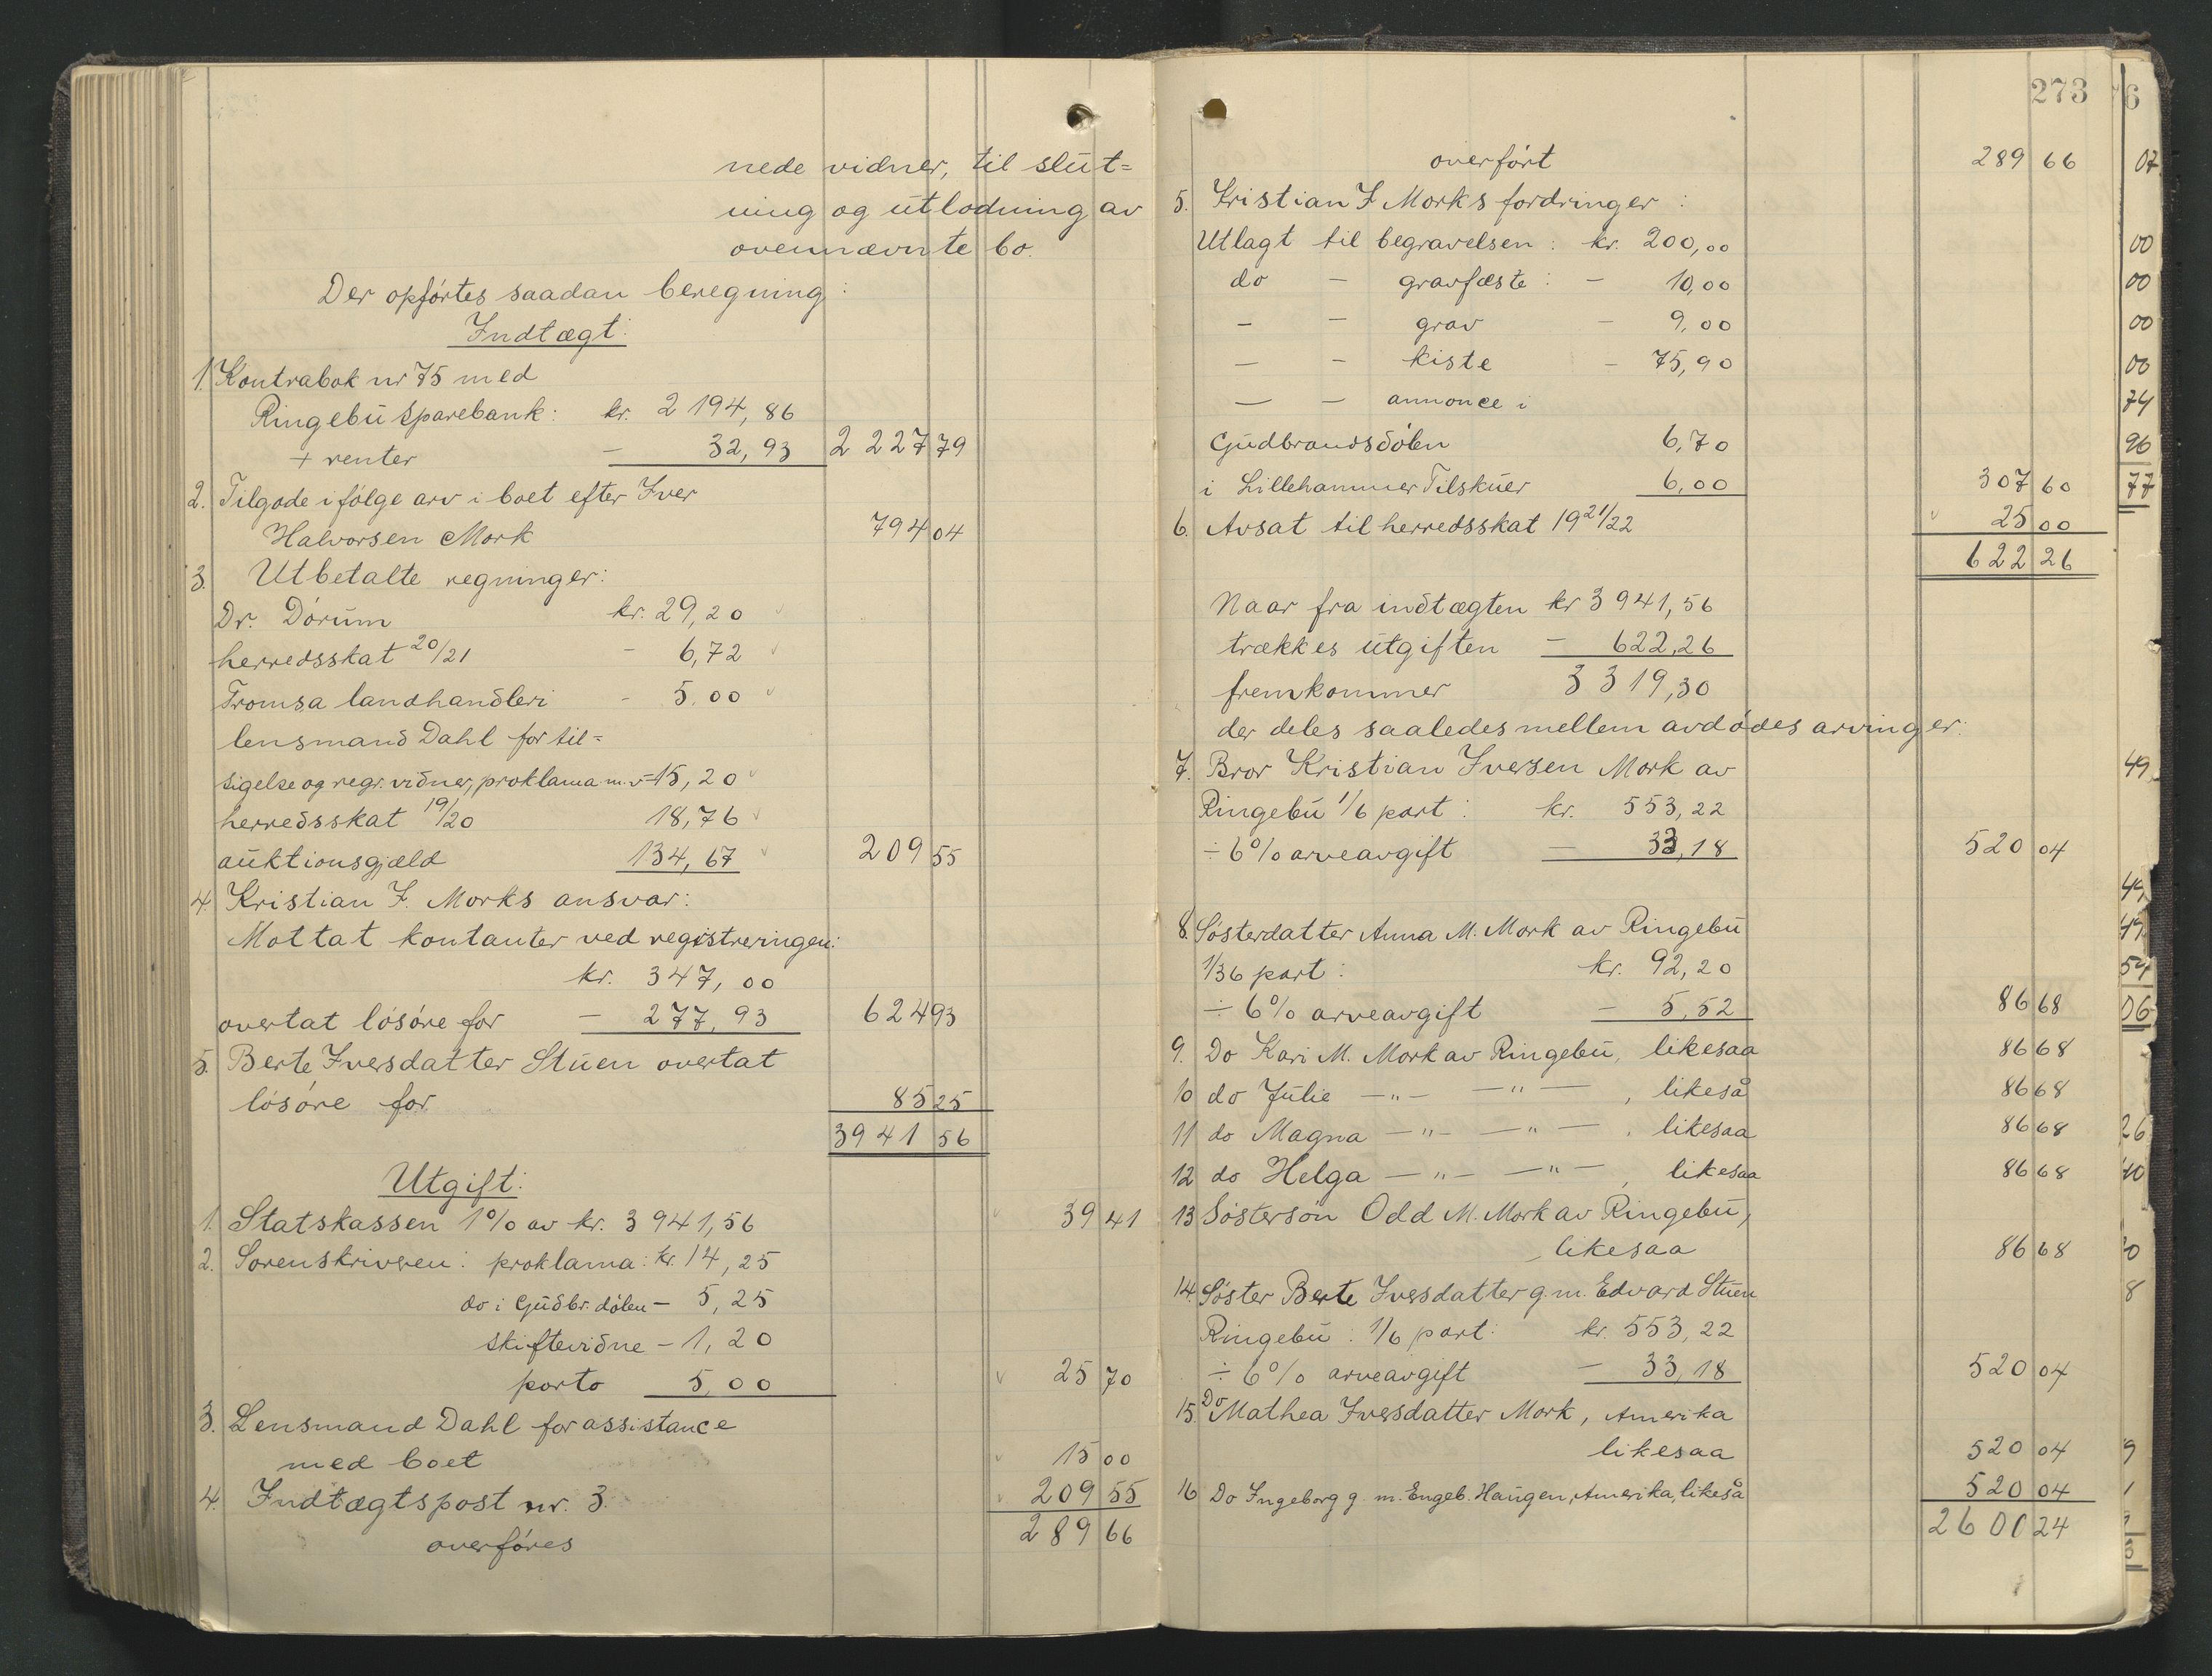 nede vidner, til slut=
ning og utlodning av
ovennævnte bo.
Der opførtes saadan beregning:
Indtægt:
1. Kontrabok nr 75 med
Ringebu Sparebank: kr. 2 194,86
+ renter - 32,93 2 227 79
2. Tilgode ifølge arv i boet efter Iver
Halvorsen Mork 794 04
3. Utbetalte regninger:
Dr. Dørum kr. 29,20
herredsskat 20/21 - 6,72
Tromsa landhandleri - 5.00
lensmand Dahl for til=
sigelse og regr. vidner, proklama m.v - 15,20
herredsskat 19/20 18,76
auktionsgjæld 134,67 209 55
4. Kristian I. Morks ansvar:
Mottat kontanter ved registreringen:
kr. 347,00
overtat løsøre for - 277,93 624 93
5. Berte Iversdatter Stuen overtat
løsøre for 85 25
3941 56
Utgift:
1. Statskassen 1% av kr. 3 941,56 39 41
2. Sorenskriveren: proklama: kr. 14,25
do i Gudbr.dølen - 5,25
skiftevidne - 1,20
porto 5,00 25 70
3. Lensmand Dahl for assistance
med boet 15 00
4. Indtægtspost nr. 3. 209 55
overføres 289 66
273
overført 289 66
5. Kristian I Morks fordringer:
Utlagt til begravelsen: kr. 200,00
do - gravfæste: - 10,00
- - grav - 9,00
- - kiste - 75,90
- - annonce i
Gudbrandsdølen 6,70
i Lillehammer Tilskuer 6,00 307 60
6. Avsat til herredsskat 1921/22 25 00
622 26
Naar fra indtægten kr 3 941,56
trækkes utgiften - 622,26
fremkommer 3 319,30
der deles saaledes mellem avdødes arvinger:
7. Bror Kristian Iversen Mork av
Ringebu 1/6 part: kr. 553,22
÷ 6% arveavgift - 33,18 520 04
8. Søsterdatter Anna M. Mork av Ringebu
1/36 part: kr. 92,20
÷ 6% arveavgift - 5,52 86 68
9. Do Kari M. Mork av Ringebu, likesaa 86 68
10 do Julie -"- -"-, likeså 86 68
11 do Magna -"- -"-, likesaa 86 68
12 do Helga -"- -"-, likesaa 86 68
13 Søstersøn Odd M. Mork av Ringebu,
likesaa 86 68
14. Søster Berte Iversdatter g.m. Edvard Stuen
Ringebu: 1/6 part: kr. 553,22
÷ 6% arveavgift - 33,18 520 04
15. Do Mathea Iversdatter Mork, Amerika
likesaa 520 04
16 Do Ingeborg g. m. Engeb. Haugen, Amerika, likeså 520 04
2600 24